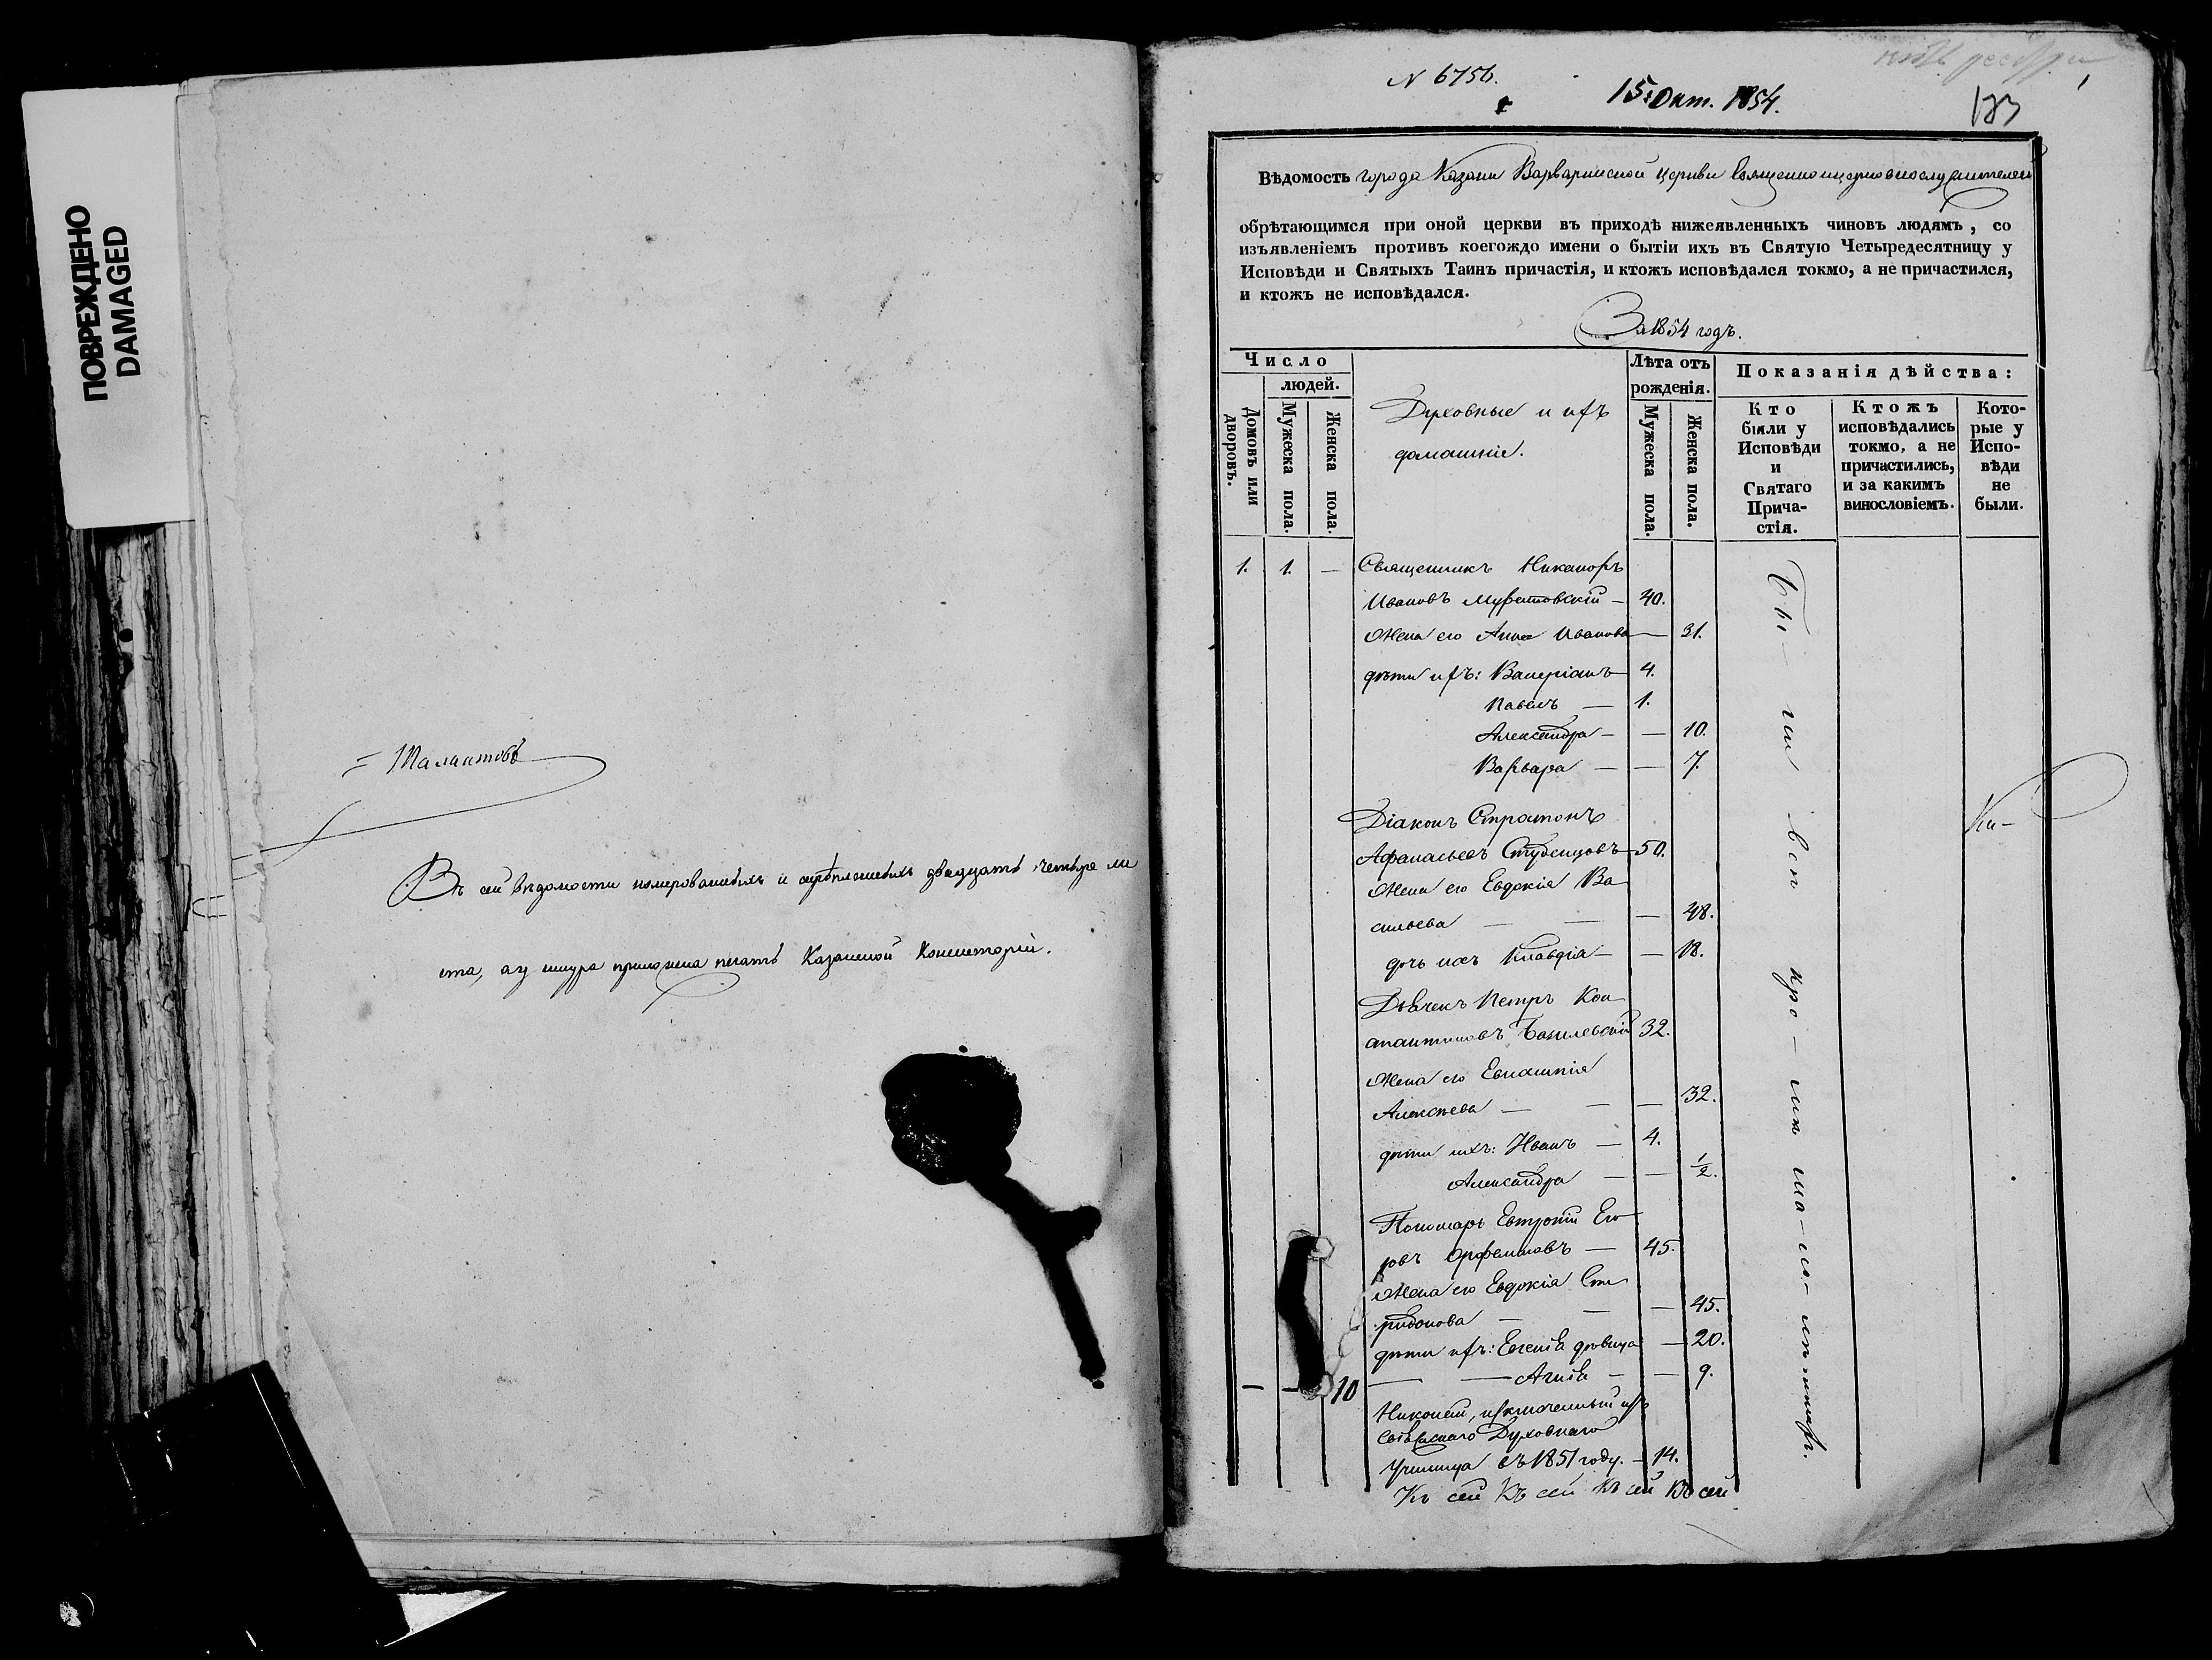 ПОВРЕЖДЕНО
DAMAGED
Талантовъ
Въ сей вѣдомости номерованныхъ и скрѣпленныхъ двадцать четыре ли
ста, а у шнура приложена печать Казанской Консисторіи.
N 6756.
15 Окт. 1854.
183
Вѣдомость города Казани Варваринской Церкви Священноцерковнослужителей
обрѣтающимся при оной церкви въ приходѣ нижеявленныхъ чиновъ людямъ, со
изъявленіемъ противъ коегождо имени о бытіи ихъ въ Святую Четыредесятницу у
Исповѣди и Святыхъ Таинъ причастія, и ктожъ исповѣдался токмо, а не причастился,
и ктожъ не исповѣдался.
За 1854 годъ.
Число
людей.
Домовъ или дворовъ.
Мужеска пола.
Женска пола.
Духовные и ихъ
домашніе.
Лѣта отъ
рожденія.
Мужеска пола.
Женска пола.
Показанія дѣйства:
Кто
были у
Исповѣди
и
Святаго
Прича-
стія.
Ктожъ
исповѣдались
токмо, а не
причастились,
и за какимъ
винословіемъ.
Кото-
рые у
Испо-
вѣди
не
были.
1. 1. — Священникъ Никаноръ
Ивановъ Муратовскій — 40.
Жена его Анна Иванова — 31.
дѣти ихъ: Валеріанъ 4.
Павелъ — 1.
Александра — — 10.
Варвара — — 7.
Діаконъ Стратонъ
Афанасьевъ Студенцовъ 50.
Жена его Евдокія Ва
сильева — — — 48.
дочь ихъ Клавдія — — 18.
Дьячекъ Петръ Кон
стантиновъ 32.
Жена его
Алексѣева — — — 32.
дѣти ихъ: Иванъ — 4.
Александра — — 1/2.
Пономарь Евтропій Его
ровъ — 45.
Жена его Евдокія Спи
ридонова — — — 45.
дѣти ихъ: Евгенія дѣвица — 20.
— — 10 — — Агнія — — 9.
исключенный изъ
Духовнаго
Училища въ 1851 году. — 14.
Къ сей Къ сей Къ сей Къ сей
Бы-ли всѣ кро-мѣ ма-ло-лѣтнихъ.